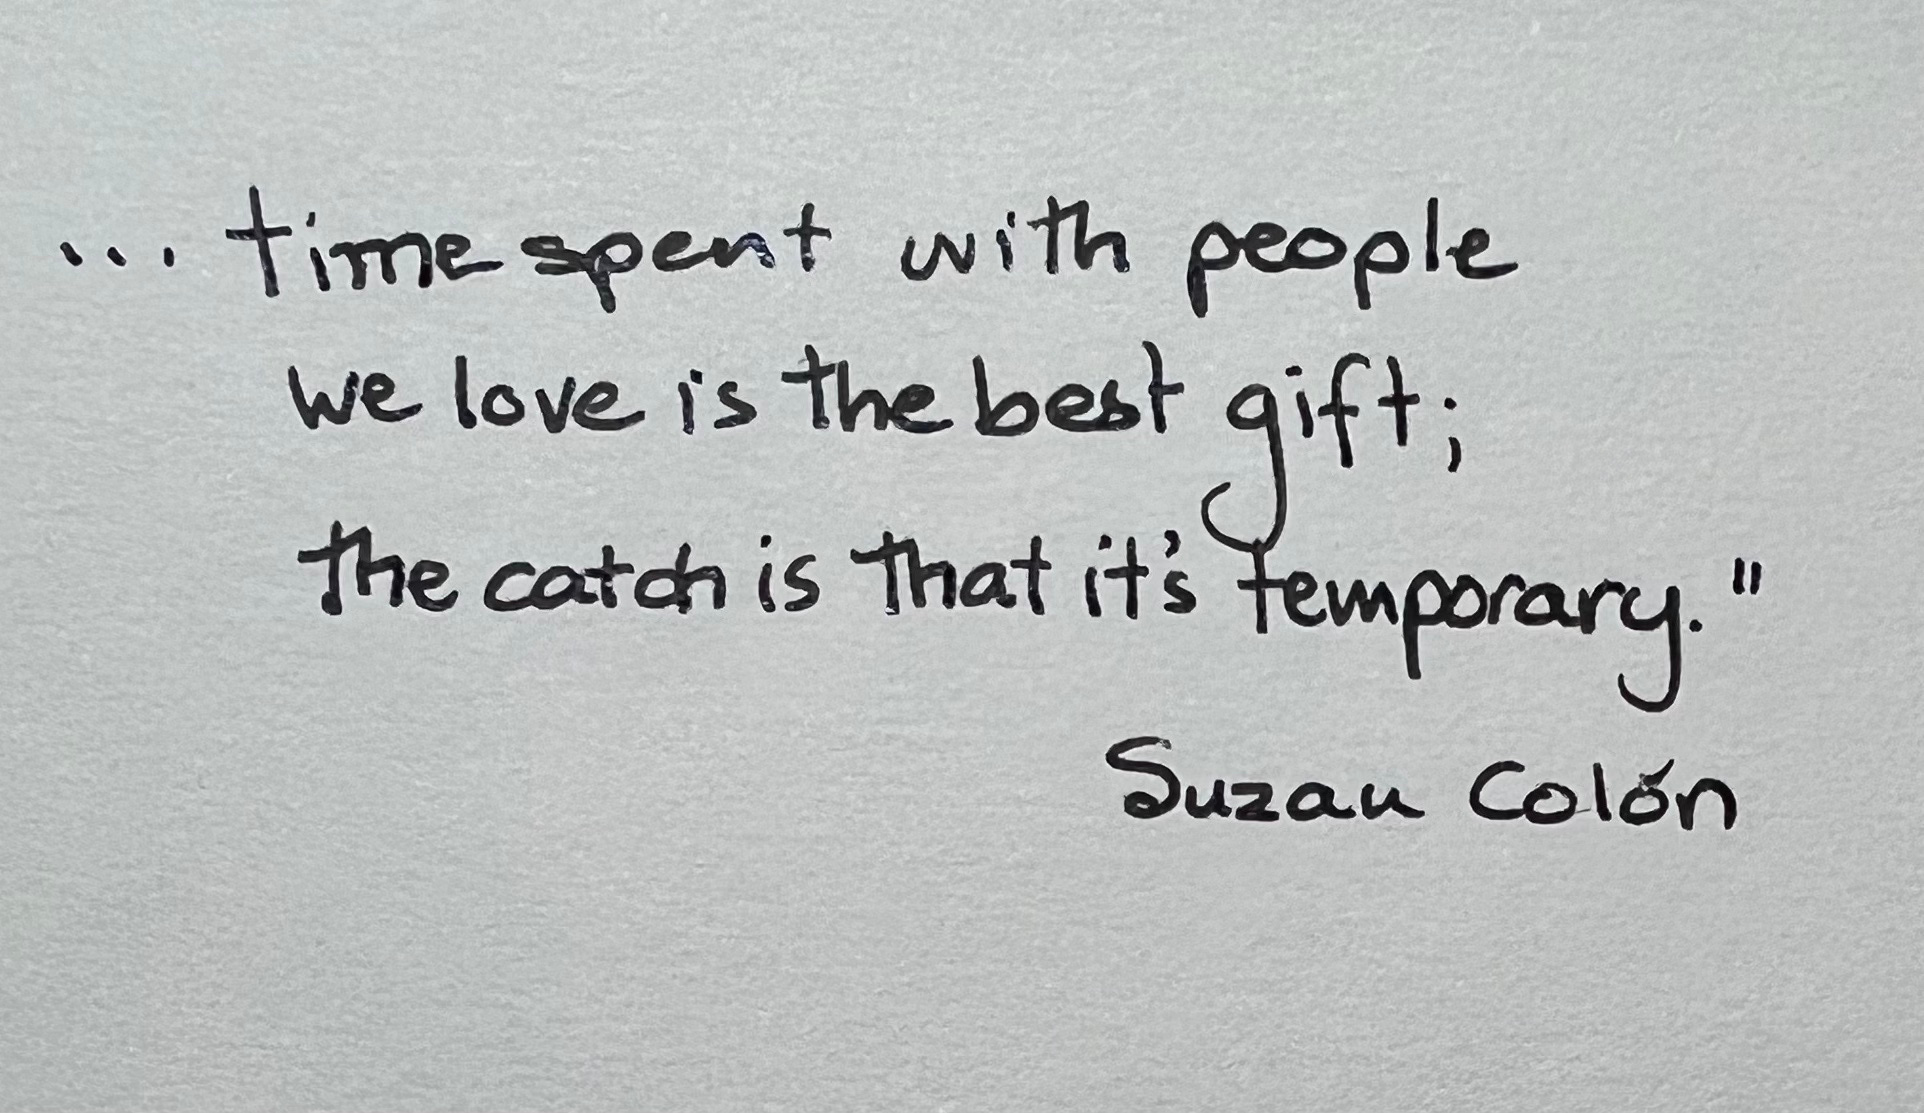 ... time spent with people
we love is the best gift;
the catch is that it's temporary."
Suzan Colón